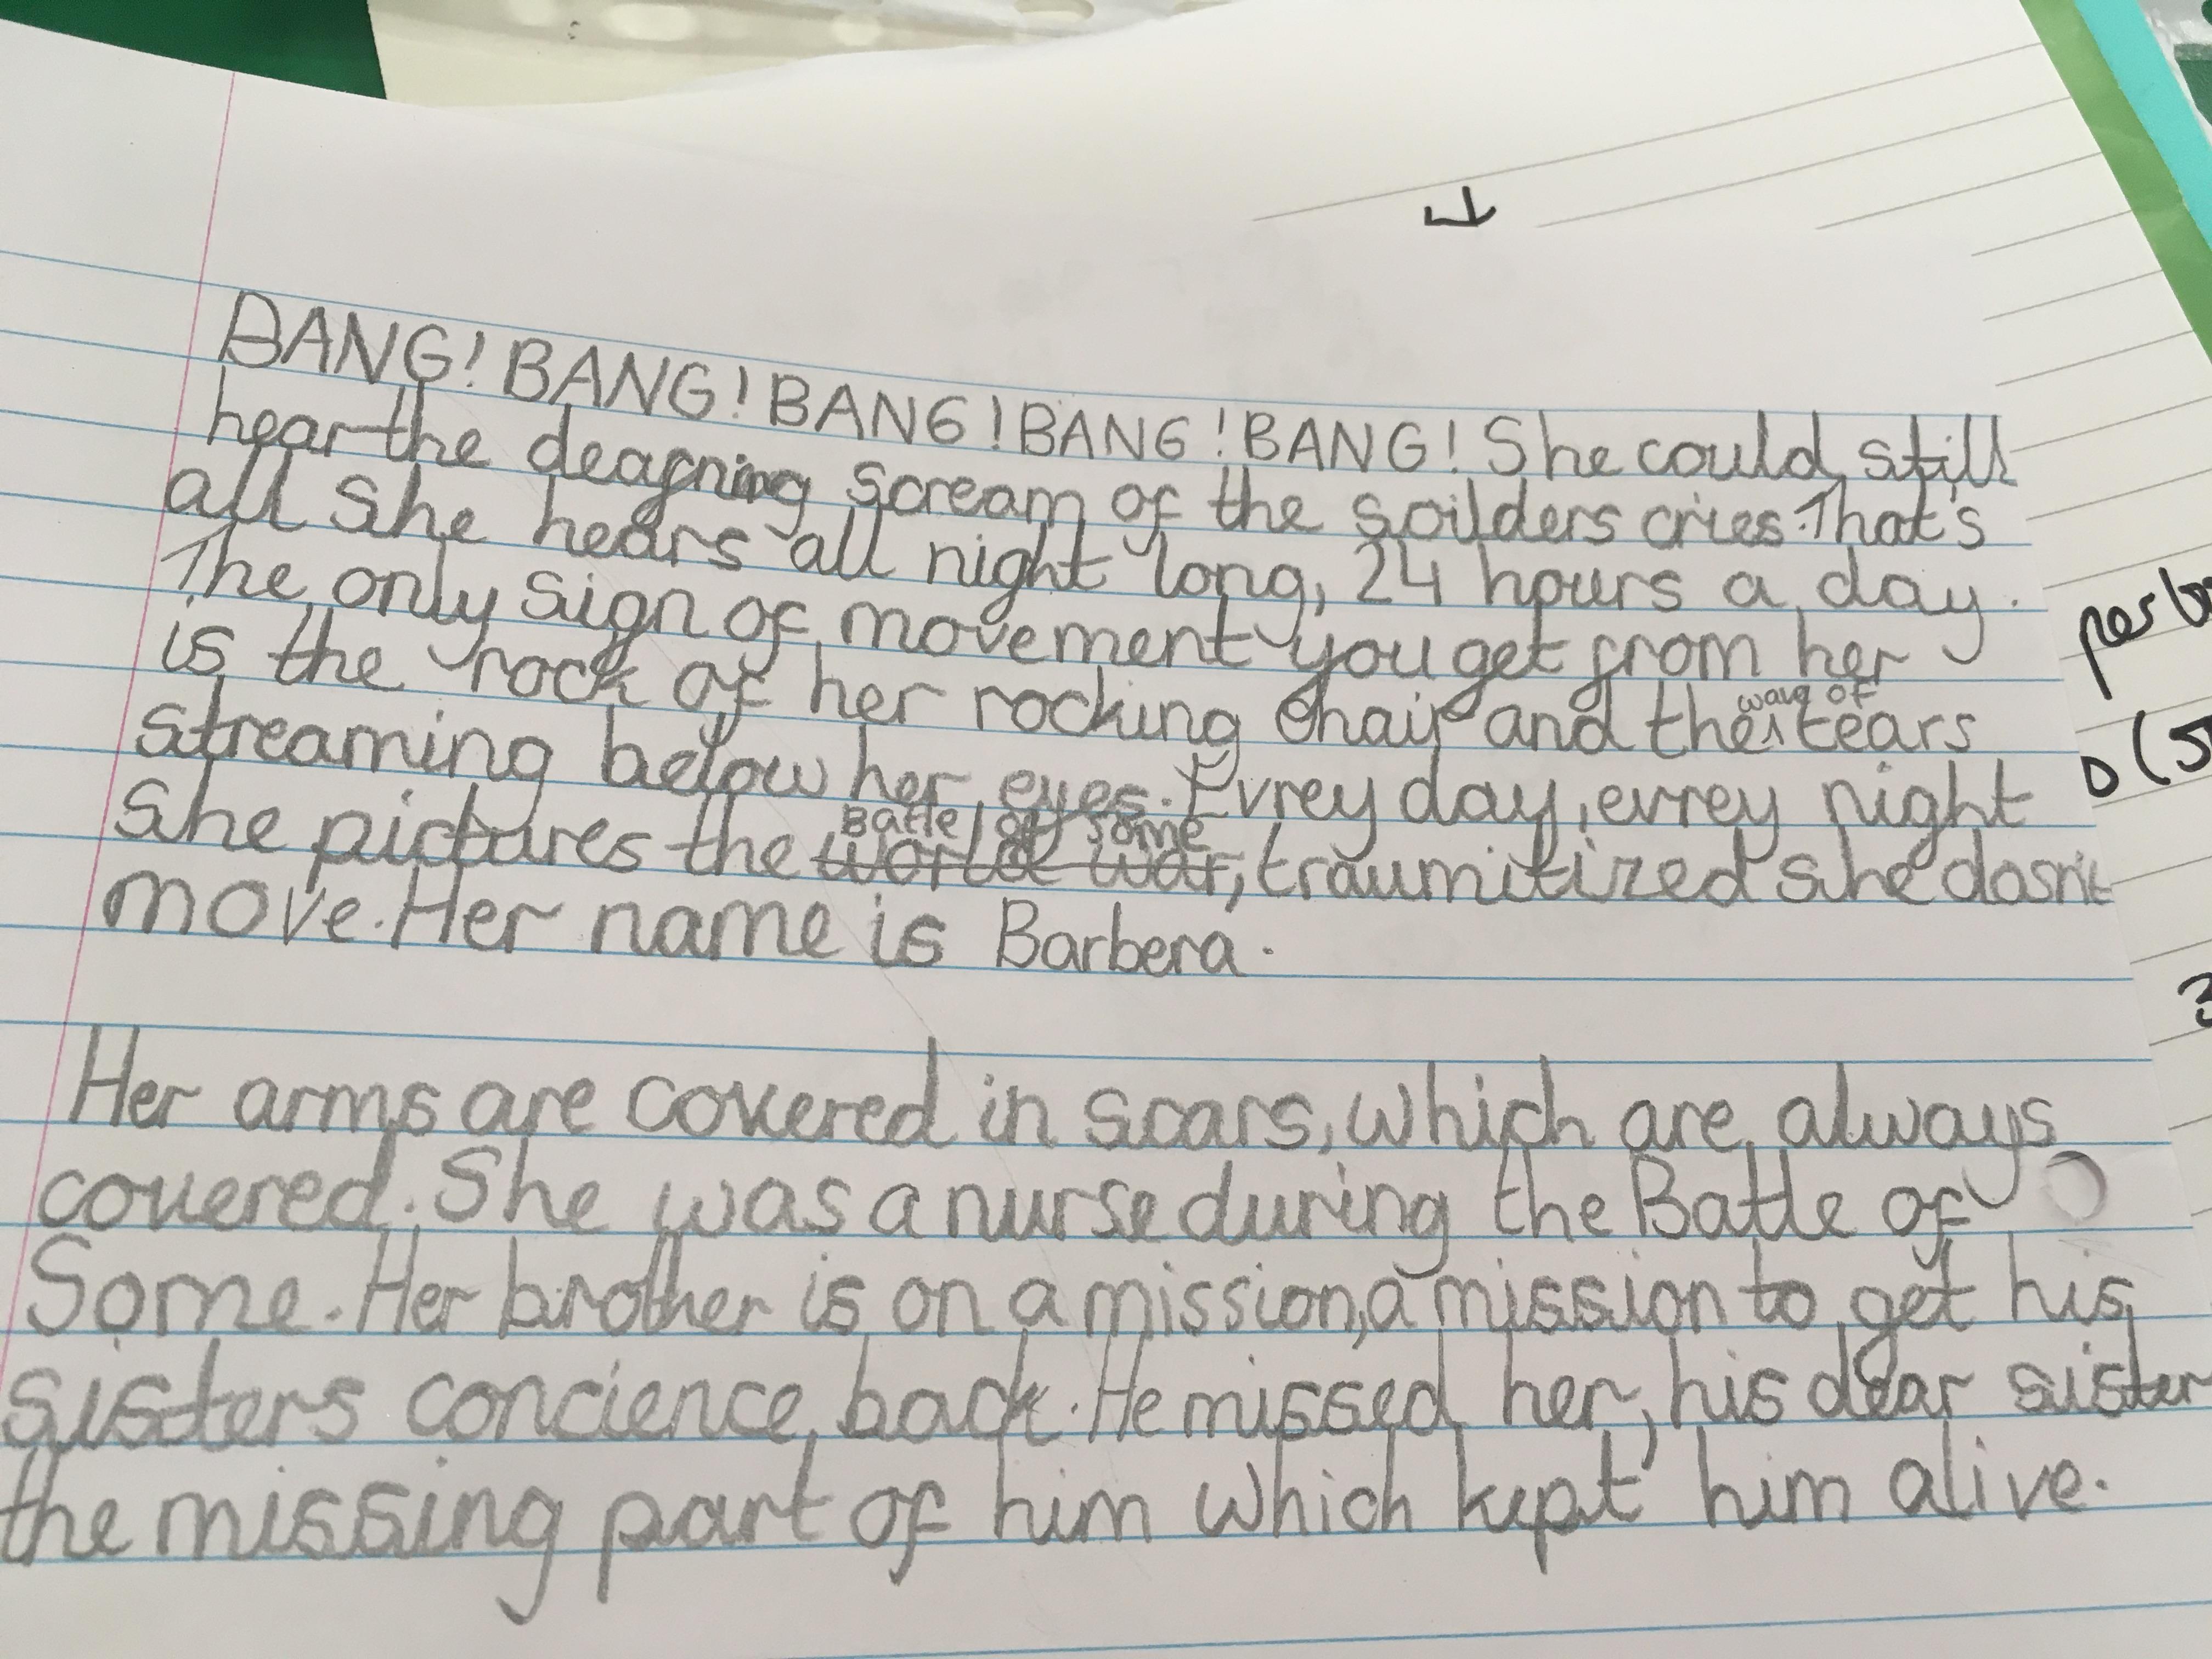 BANG! BANG! BANG! BANG! BANG! She could still
hear the deafning scream of the soilders cries. That's
all she hears all night long, 24 hours a day.
The only sign of movement you get from her
is the rock of her rocking chair and the wave of tears
streaming below her eyes. Evrey day, evrey night
Battle of Some
she pictures the world war, traumitized she dosn't
move. Her name is Barbera.
Her arms are covered in scars, which are always
covered. She was a nurse during the Battle of
Some. Her brother is on a mission, a mission to get his
sisters concience back. He missed her, his dear sister
the missing part of him which kept him alive.